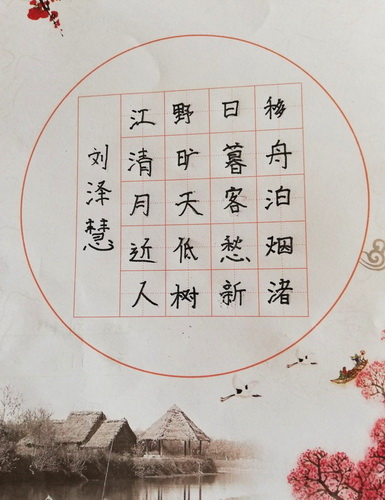 移舟泊烟渚
日暮客愁新
野旷天低树
江清月近人
刘泽慧